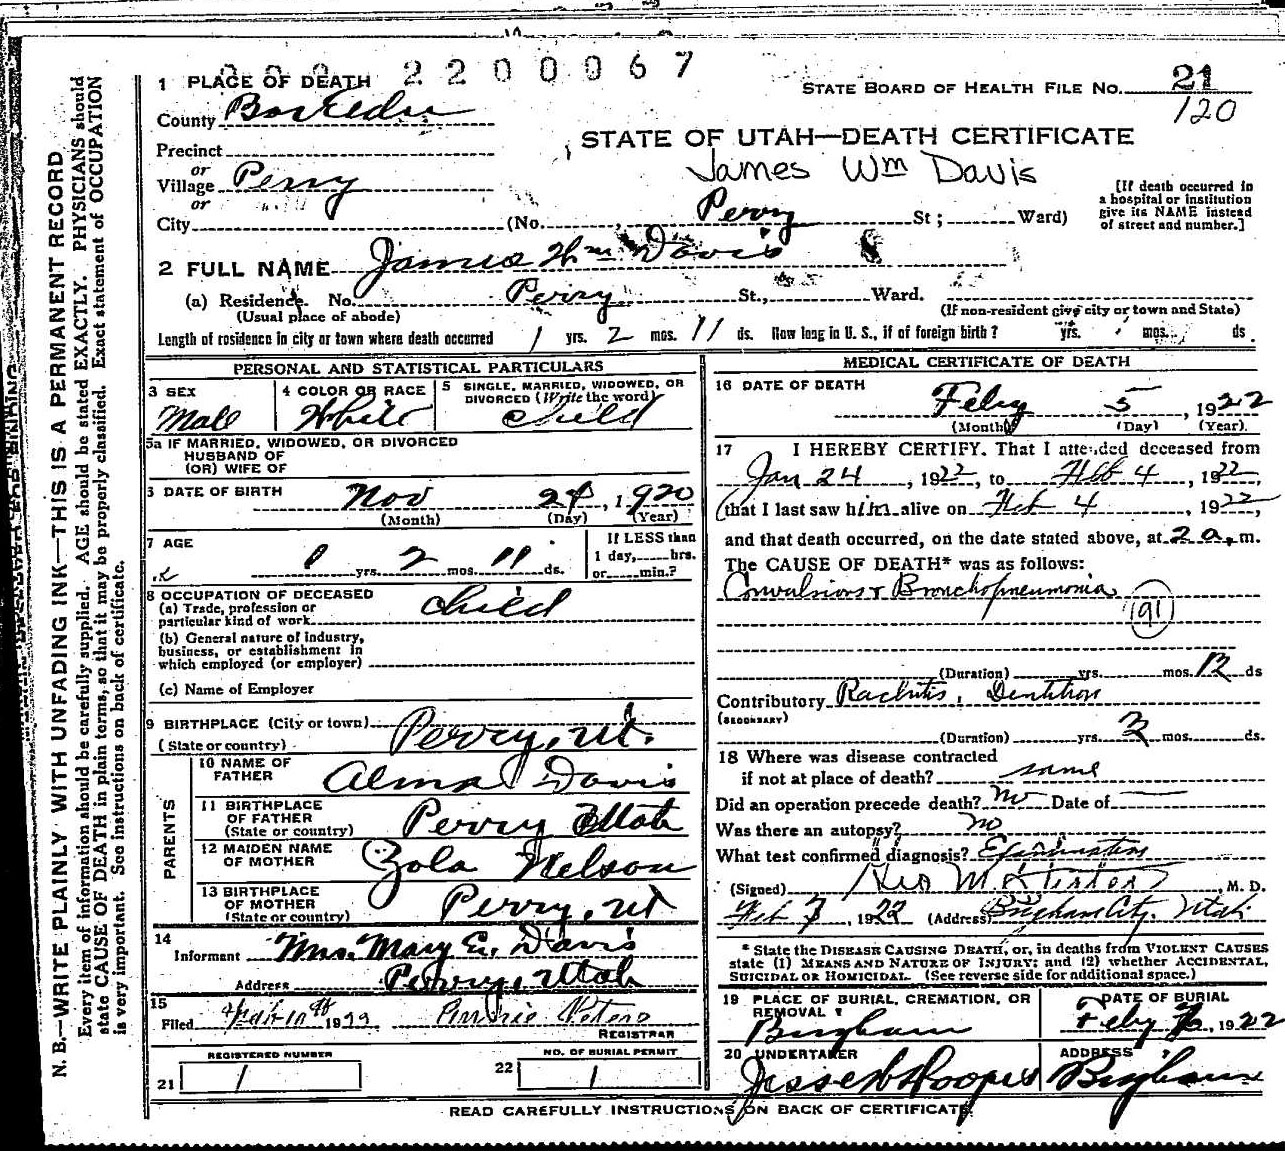 2200067
1 PLACE OF DEATH
STATE BOARD OF HEALTH FILE NO. 21
120
County Box Elder
STATE OF UTAH—DEATH CERTIFICATE
Precinct
James Wm Davis
or
Village Perry
or
[If death occurred in a hospital or institution give its NAME instead of street and number.]
City (No. Perry St; Ward)
2 FULL NAME James Wm Davis
(a) Residence. No. Perry St., Ward.
(Usual place of abode) (If non-resident give city or town and State)
Length of residence in city or town where death occurred 1 yrs. 2 mos. 11 ds. How long in U. S., if of foreign birth? yrs. mos. ds.
PERSONAL AND STATISTICAL PARTICULARS
3 SEX Male
4 COLOR OR RACE White
5 SINGLE, MARRIED, WIDOWED, OR DIVORCED (Write the word) Child
5a IF MARRIED, WIDOWED, OR DIVORCED
HUSBAND OF
(OR) WIFE OF
6 DATE OF BIRTH Nov 24, 1920
(Month) (Day) (Year)
7 AGE 1 yrs. 2 mos. 11 ds.
If LESS than 1 day, hrs. or min.?
8 OCCUPATION OF DECEASED
(a) Trade, profession or particular kind of work Child
(b) General nature of industry, business, or establishment in which employed (or employer)
(c) Name of Employer
9 BIRTHPLACE (City or town) Perry, Ut.
(State or country)
PARENTS
10 NAME OF FATHER Alma Davis
11 BIRTHPLACE OF FATHER (State or country) Perry Utah
12 MAIDEN NAME OF MOTHER Zola Nelson
13 BIRTHPLACE OF MOTHER (State or country) Perry, Ut
14 Informant Mrs. Mary E. Davis
Address Perry, Utah
15 Filed 10th 1922 Peters
REGISTRAR
REGISTERED NUMBER
21 1
NO. OF BURIAL PERMIT
22 1
MEDICAL CERTIFICATE OF DEATH
16 DATE OF DEATH
Feby 5, 1922
(Month) (Day) (Year).
17 I HEREBY CERTIFY. That I attended deceased from
Jan 24, 1922, to Feb 4, 1922,
(that I last saw him alive on Feb 4, 1922,
and that death occurred, on the date stated above, at 2 a. m.
The CAUSE OF DEATH* was as follows:
Convulsions + Bronchopneumonia
191
(Duration) yrs. mos. 12 ds
Contributory Rachitis, Dentition
(SECONDARY)
(Duration) yrs. mos. ds.
18 Where was disease contracted
if not at place of death? same
Did an operation precede death? No Date of
Was there an autopsy? no
What test confirmed diagnosis? Examination
(Signed) M. D.
Feb 7, 1922 (Address) Brigham City, Utah
* State the DISEASE CAUSING DEATH, or, in deaths from VIOLENT CAUSES
state (1) MEANS AND NATURE OF INJURY; and (2) whether ACCIDENTAL,
SUICIDAL OR HOMICIDAL. (See reverse side for additional space.)
19 PLACE OF BURIAL, CREMATION, OR REMOVAL Brigham
DATE OF BURIAL Feby 7, 1922
20 UNDERTAKER
ADDRESS Brigham
READ CAREFULLY INSTRUCTIONS ON BACK OF CERTIFICATE.
N. B.—WRITE PLAINLY WITH UNFADING INK—THIS IS A PERMANENT RECORD
Every item of information should be carefully supplied. AGE should be stated EXACTLY. PHYSICIANS should
state CAUSE OF DEATH in plain terms, so that it may be properly classified. Exact statement of OCCUPATION
is very important. See instructions on back of certificate.